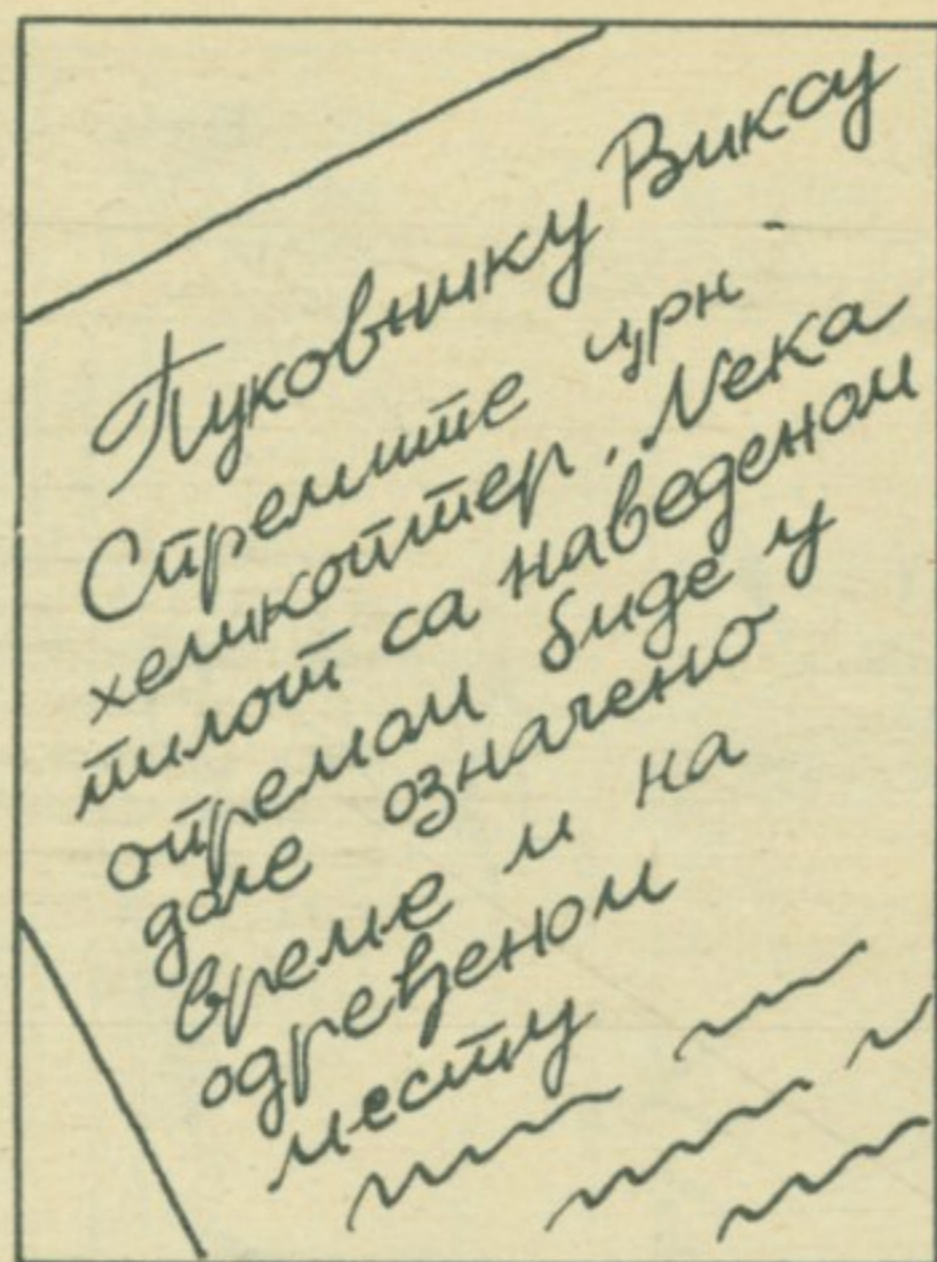 Пуковнику Виксу
Спремите црн
хеликоптер. Нека
пилот са наведеном
опремом буде у
дале означено
време и на
одређеном
месту